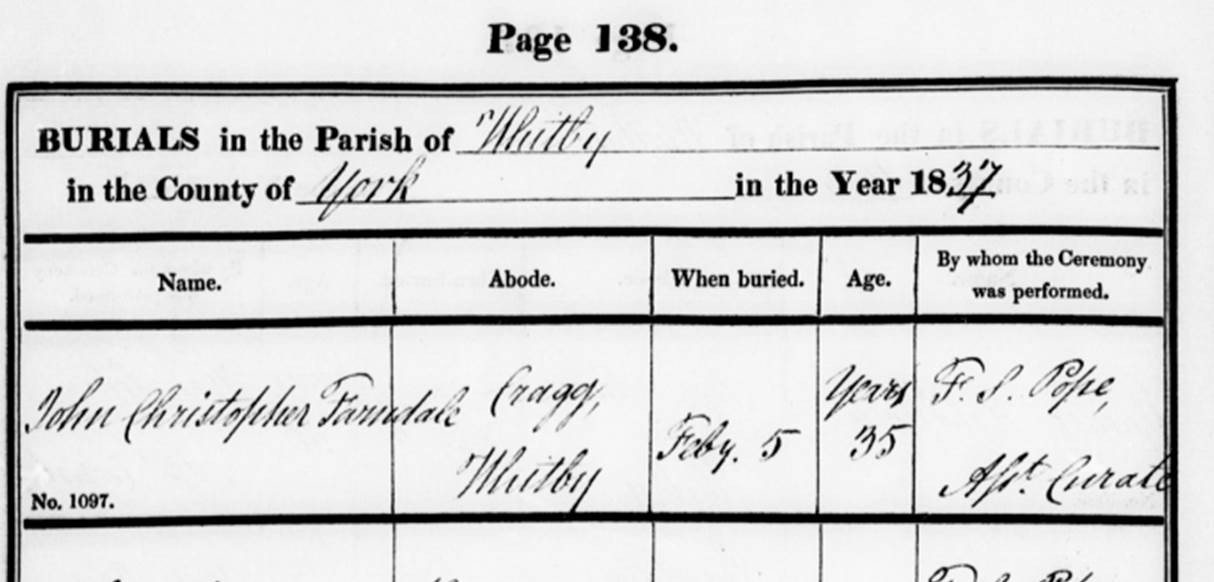 Page 138.
BURIALS in the Parish of Whitby
in the County of York in the Year 1837
Name. Abode. When buried. Age. By whom the Ceremony was performed.
John Christopher Farndale Cragg, Whitby Feby. 5 Years 35 F. S. Pope, Asst Curate
No. 1097.